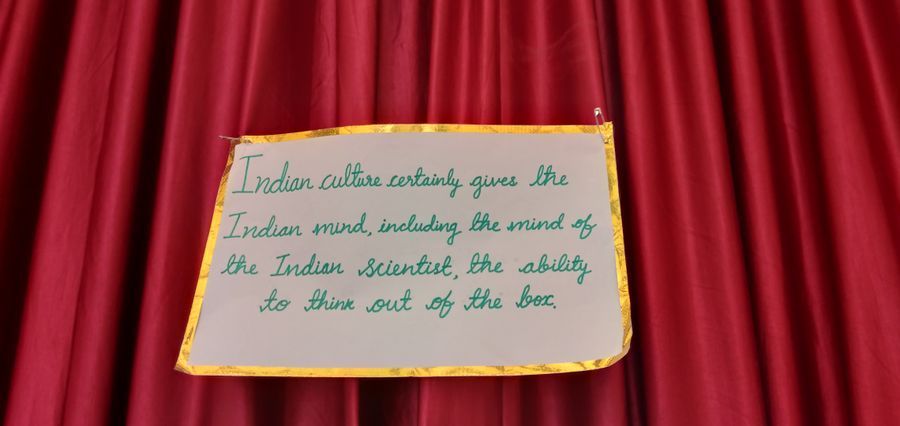 Indian culture certainly gives the
Indian mind, including the mind of
the Indian scientist, the ability
to think out of the box.